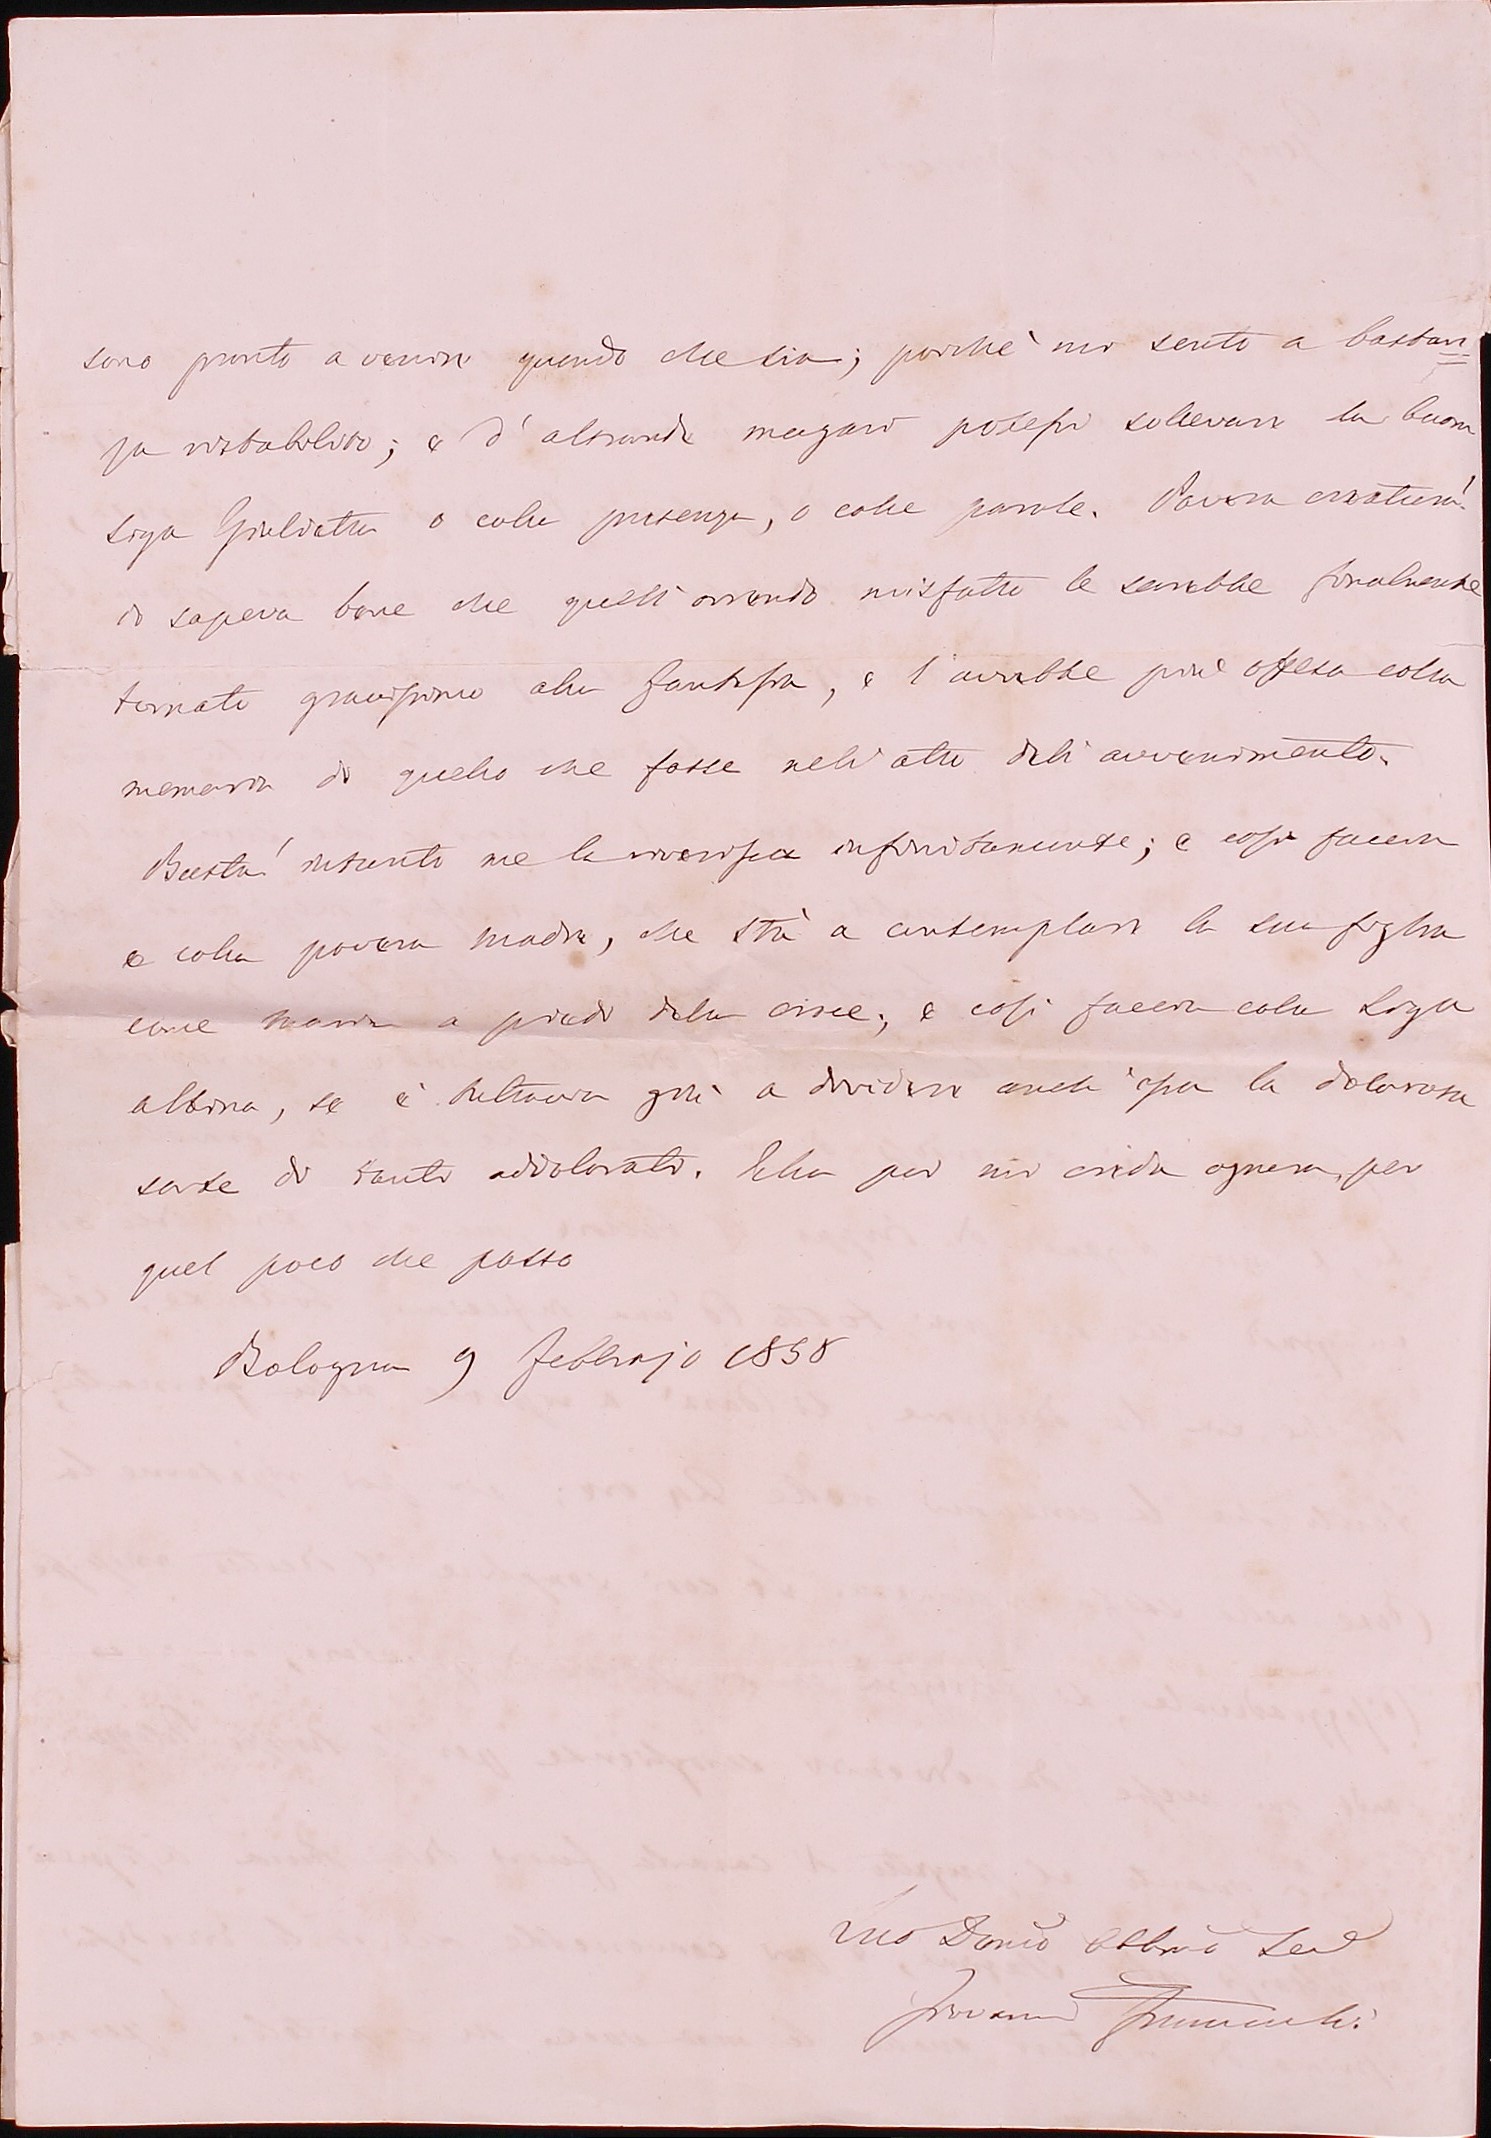 sono pronto a venire quando che sia; poichè mi sento a bastan=
za ristabilito; e d'altronde magari potessi sollevare la buona
Sig.a Giulietta o colla presenza, o colle parole. Povera creatura!
io sapeva bene che quell'orrendo misfatto le sarebbe finalmente
tornato gravissimo alla fantasia, e l'avrebbe più offesa colla
memoria di quello che fosse nell'atto dell'avvenimento.
Basta! intanto me la riverisca infinitamente; e così faccia
e colla povera madre, che stà a contemplare la sua figlia
come Maria a piedi della croce; e così faccia colla Sig.a
Albina, se è tuttavia giù a dividere anch'essa la dolorosa
sorte di tanti addolorati. Ella poi mi creda ognora, per
quel poco che posso
Bologna 9 febbrajo 1858
Suo Dev.mo Obbl.mo Ser.e
Giovanni